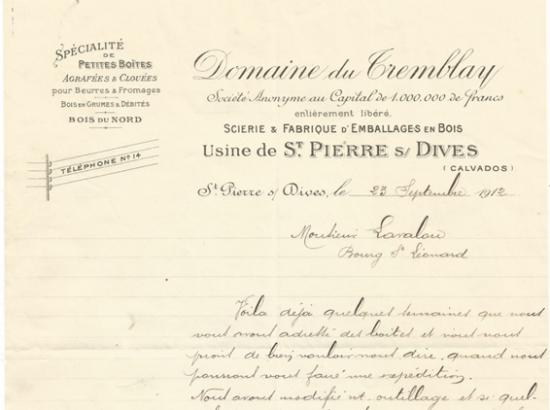 SPÉCIALITÉ
DE
PETITES BOÎTES
AGRAFÉES & CLOUÉES
pour BEURRES & FROMAGES
BOIS EN GRUMES & DÉBITÉS
BOIS DU NORD
TÉLÉPHONE No 14
Domaine du Tremblay
Société Anonyme au Capital de 1.000.000 de francs
entièrement libéré.
SCIERIE & FABRIQUE D'EMBALLAGES EN BOIS
Usine de ST. PIERRE s/ DIVES
(CALVADOS)
St Pierre s/ Dives, le 23 Septembre 1912
Monsieur Lavalou
Bourg St Léonard
Voila déjà quelques semaines que nous
vous avons adressé des boites et vous nous
de bien vouloir nous dire, quand nous
pourrons vous faire une expédition.
Nous avons modifié nt. outillage et si quel-